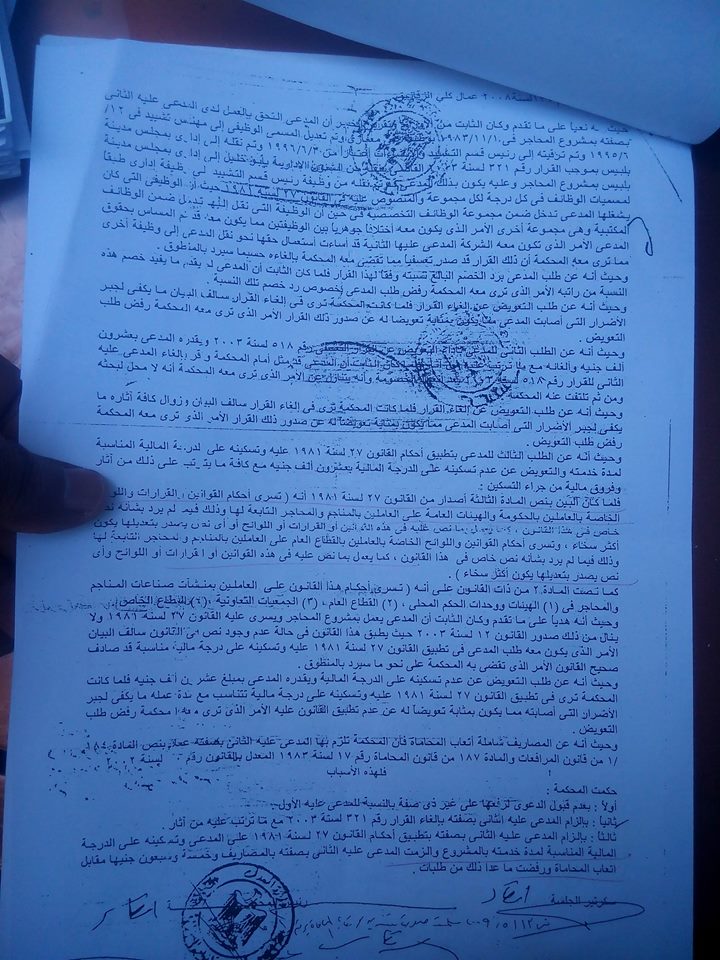 لسنة ٢٠٠٨ عمال كلي الزقازيق
حيث نه نعياً على ما تقدم وكان الثابت من أن المدعى التحق بالعمل لدى المدعى عليه الثانى
بصفته بمشروع المحاجر فى ١٩٨٣/١١/١ وتم تعديل المسمى الوظيفى إلى مهندس تشييد فى /١٢
١٩٩٥/٦ وتم ترقيته إلى رئيس قسم التشييد اعتباراً من ١٩٩٦/٦/٣٠ وتم نقله إلى إدارى بمجلس مدينة
بلبيس بموجب القرار رقم ٣٢١ لسنة ٢٠٠٣ الشئون الادارية إلى إدارى بمجلس مدينة
بلبيس بمشروع المحاجر وعليه يكون بذلك المدعى نقله من وظيفة رئيس قسم التشييد لى وظيفة إدارى طبقا
لمسميات الوظائف فى كل درجة لكل مجموعة والمنصوص عليه فى القانون ٢٧ لسنة ١٩٨١ حيث أن الوظيفى التى كان
يشغلها المدعى تدخل ضمن مجموعة الوظائف التخصصية فى حين أن الوظيفة التى نقل اليها تدخل ضمن الوظائف
المكتبية وهى مجموعة أخرى الأمر الذى يكون معه أختلافاً جوهرياً بين الوظيفتين مما يكون معه قد تم المساس بحقوق
المدعى الامر الذى تكون معه الشركة المدعى عليها الثانية قد أساءت أستعمال حقها نحو نقل المدعى إلى وظيفة أخرى
مما ترى معه المحكمة أن ذلك القرار قد صدر تعسفياً مما تقضى معه المحكمة بالغاءه حسبما سيرد بالمنطوق .
وحيث أنه عن طلب المدعى برد الخصم البالغ نسبته وفقاً لهذا القرار فلما كان الثابت أن المدعى لم يقدم ما يفيد خصم هذه
النسبة من راتبه الأمر الذى ترى معه المحكمة رفض طلب المدعى بخصوص رد خصم تلك النسبة .
وحيث أنه عن طلب التعويض عن إلغاء القرار فلما كانت المحكمة ترى فى إلغاء القرار سالف البيان ما يكفى لجبر
الأضرار التى أصابت المدعى مما يكون بمثابة تعويضا له عن صدور ذلك القرار الأمر الذى ترى معه المحكمة رفض طلب
التعويض .
وحيث أنه عن الطلب الثانى للمدعى رقم ٥١٨ لسنة ٢٠٠٣ ويقدره المدعى بعشرون
ألف جنيه والغائه مع ما ترتب الثابت أن المدعى قد مثل أمام المحكمة و قر بإلغاء المدعى عليه
الثانى للقرار رقم ٥١٨ لسنة ٢٠٠٣ الخصومة وأنه يتنازل عن الأمر الذى ترى معه المحكمة أنه لا محل لبحثه
ومن ثم تلتفت عنه المحكمة
وحيث أنه عن طلب التعويض عن إلغاء القرار فلما كانت المحكمة ترى فى إلغاء القرار سالف البيان وزوال كافة أثاره ما
يكفى لجبر الأضرار التى أصابت المدعى مما يكون بمثابة تعويضا له عن صدور ذلك القرار الأمر الذى ترى معه المحكمة
رفض طلب التعويض .
وحيث أنه عن الطلب الثالث للمدعى بتطبيق أحكام القانون ٢٧ لسنة ١٩٨١ عليه وتسكينه على لدرجة المالية المناسبة
لمدة خدمته والتعويض عن عدم تسكينه على الدرجة المالية بعشرون ألف جنيه مع كافة ما يترتب على ذلك من أثار
وفروق مالية من جراء التسكين :
فلما كان البين بنص المادة الثالثة أصدار من القانون ٢٧ لسنة ١٩٨١ أنه ( تسرى أحكام القوانين والقرارات واللوائح
الخاصة بالعاملين بالحكومة والهيئات العامة على العاملين بالمناجم والمحاجر التابعة لها وذلك فيما لم يرد بشأنه نص
خاص فى هذا القانون ، كما يعمل بما نص عليه فى هذه القوانين أو القرارات أو اللوائح أو أى نص يصدر بتعديلها يكون
أكثر سخاء ، وتسرى أحكام القوانين واللوائح الخاصة بالعاملين بالقطاع العام على العاملين بالمناجم و لمحاجر التابعة لها
وذلك فيما لم يرد بشأنه نص خاص فى هذا القانون ، كما يعمل بما نص عليه فى هذه القوانين أو ا قرارات أو اللوائح وأى
نص يصدر بتعديلها يكون أكثر سخاء ) .
كما نصت المادة ٢ من ذات القانون على أنه ( تسرى أحكام هذا القانون على العاملين بمنشآت صناعات المناجم
والمحاجر فى (١) الهيئات ووحدات الحكم المحلى ، (٢) القطاع العام ، (٣) الجمعيات التعاونية ، (٦) القطاع الخاص)
وحيث أنه هدياً على ما تقدم وكان الثابت أن المدعى يعمل بمشروع المحاجر ويسرى عليه القانون ٢٧ لسنة ١٩٨١ ولا
ينال من ذلك صدور القانون ١٢ لسنة ٢٠٠٣ حيث يطبق هذا القانون فى حالة عدم وجود نص فى القانون سالف البيان
الأمر الذى يكون معه طلب المدعى فى تطبيق القانون ٢٧ لسنة ١٩٨١ عليه وتسكينه على درجة مالية مناسبة قد صادف
صحيح القانون الأمر الذى تقضى به المحكمة على نحو ما سيرد بالمنطوق .
وحيث أنه عن طلب التعويض عن عدم تسكينه على الدرجة المالية ويقدره المدعى بمبلغ عشرين ألف جنيه فلما كانت
المحكمة ترى فى تطبيق القانون ٢٧ لسنة ١٩٨١ عليه وتسكينه على درجة مالية تتناسب مع مدة عمله ما يكفى لجبر
الأضرار التى أصابته مما يكون بمثابة تعويضا له عن عدم تطبيق القانون عليه الأمر الذى ترى معه المحكمة رفض طلب
التعويض .
وحيث أنه عن المصاريف شاملة أتعاب المحاماة فأن المحكمة تلزم بها المدعى عليه الثانى بصفته عملا بنص المادة ١٨٤
/١ من قانون المرافعات والمادة ١٨٧ من قانون المحاماة رقم ١٧ لسنة ١٩٨٣ المعدل بالقانون رقم لسنة ٢٠٠٢
فلهذه الأسباب
حكمت المحكمة :
أولاً : بعدم قبول الدعوى لرفعها على غير ذى صفة بالنسبة للمدعى عليه الأول .
ثانياً : بإلزام المدعى عليه الثانى بصفته بإلغاء القرار رقم ٣٢١ لسنة ٢٠٠٣ مع ما ترتب عليه من أثار .
ثالثاً : بإلزام المدعى عليه الثانى بصفته بتطبيق أحكام القانون ٢٧ لسنة ١٩٨١ على المدعى وتسكينه على الدرجة
المالية المناسبة لمدة خدمته بالمشروع والزمت المدعى عليه الثانى بصفته بالمصاريف وخمسة وسبعون جنيها مقابل
أتعاب المحاماة ورفضت ما عدا ذلك من طلبات .
سكرتير الجلسة